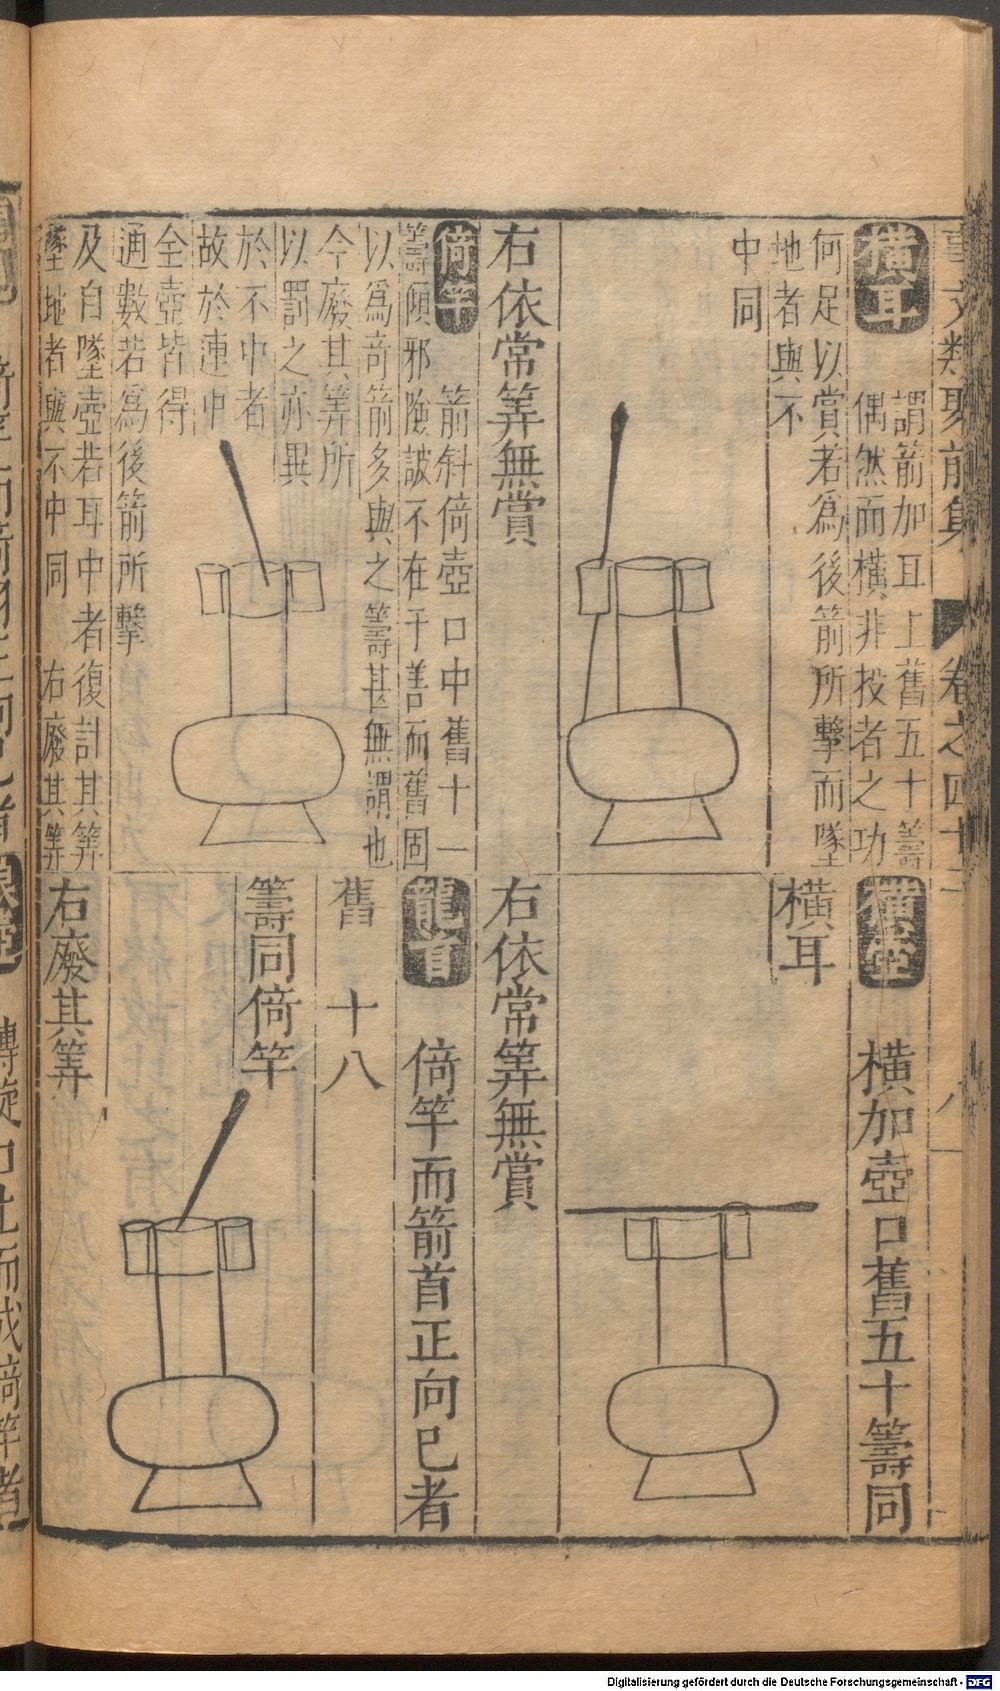 事文類聚前集 卷之四十二
八
橫耳
謂箭加耳上舊五十籌
偶然而橫非投者之功
何足以賞若為後箭所擊而墜
地者與不
中同
右依常筭無賞
倚竿
箭斜倚壺口中舊十一
籌傾邪險詖不在于善而舊固
以為奇箭多與之籌甚無謂也
今廢其筭所
以罰之亦異
於不中者
故於連中
全壺皆得
通數若為後箭所擊
及自墜壺若耳中者復計其筭
墜地者與不中同 右廢其筭
橫壺
橫加壺口舊五十籌同
橫耳
右依常筭無賞
龍首
倚竿而箭首正向已者
舊 十八
籌同倚竿
右廢其筭
Digitalisierung gefördert durch die Deutsche Forschungsgemeinschaft - DFG